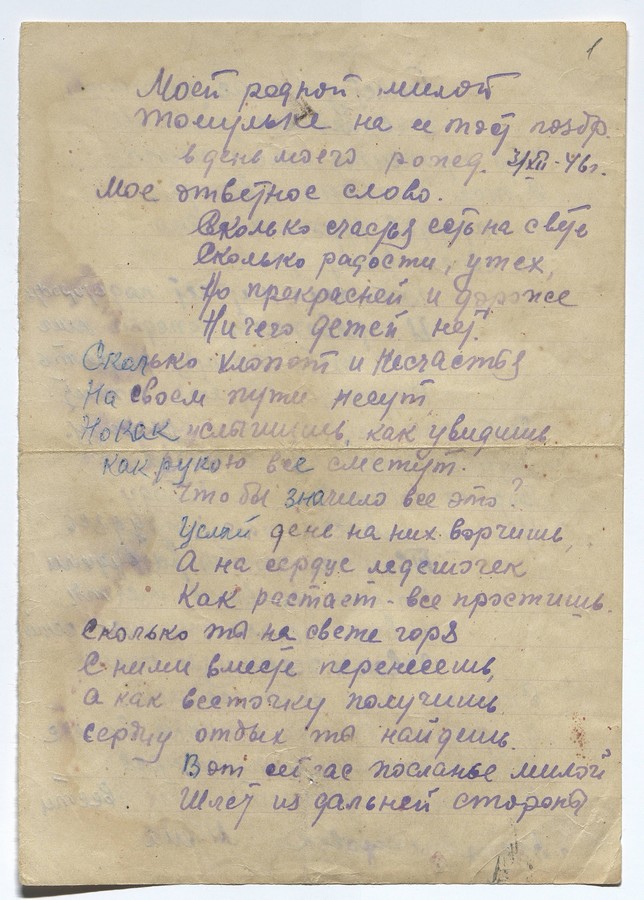 1
Моей родной милой
Томульке на ее поздр.
в день моего рожд. 3/XII-46г.
Мое ответное слово.
Сколько счастья есть на свете
Сколько радости, утех,
Но прекрасней и дороже
Ничего детей нет.
Сколько хлопот и несчастья
На своем пути несут,
Но как услышишь, как увидишь
как рукою все сметут.
Что бы значило все это?
Целый день на них ворчишь,
А на сердце ледешочек
Как растает - все простишь.
Сколько ты на свете горя
С ними вместе перенесешь,
а как весточку получишь
сердцу отдых ты найдешь.
Вот сейчас посланье милой
Шлет из дальней стороны